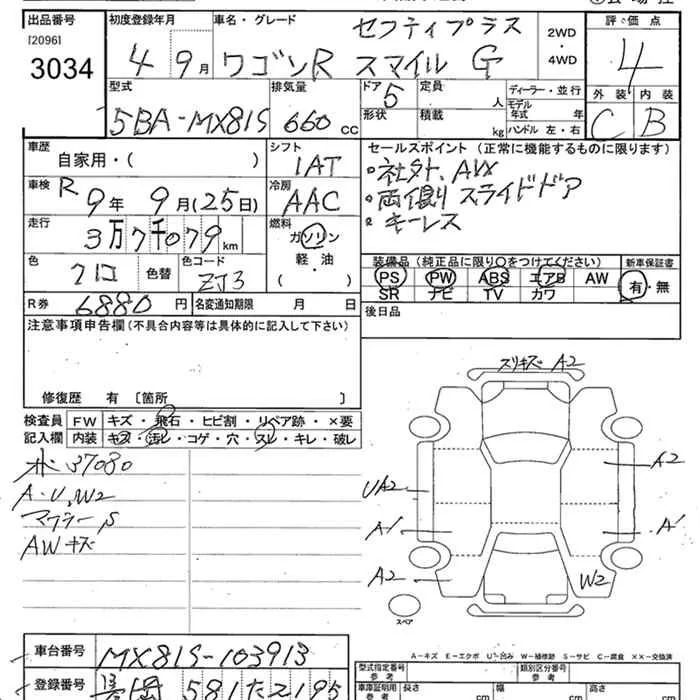 出品番号 初度登録年月 車名・グレード セフティプラス 2WD ・ 4WD 評価点
[2096]
3034 4 9月 ワゴンR スマイル G 4
型式 排気量 ドア 5 定員 人 ディーラー・並行 外装 内装
5BA-MX81S 660 cc 形状 積載 kg モデル年式 年 ハンドル 左・右 C B
車歴 自家用・( ) シフト 1AT セールスポイント(正常に機能するものに限ります)
・社外.AW
車検 R9年9月(25日) 冷房 AAC ・両側スライドドア
・キーレス
走行 3万7千079km 燃料 ガソリン 軽・油 ( )
色 クロ 色替 色コード ZJ3
装備品(純正品に限り○をつけてください) 新車保証書
PS PW ABS エアB AW 有・無
SR ナビ TV カワ
R券 6880円 名変通知期限 月 日 後日品
注意事項申告欄(不具合内容等は具体的に記入して下さい)
修復歴 有 〔箇所 〕
検査員 FW キズ・飛石・ヒビ割・リペア跡・×要
記入欄 内装 キズ・汚レ・コゲ・穴・スレ・キレ・破レ
37080
A・U,W2
マフラーS
AWキズ
スリキズ A2
A2
UA2
A1 A1
A2 W2
スペア
A-キズ E-エクボ U-凹み W-補修跡 S-サビ C-腐食 XX-交換済
車台番号 MX81S-103913
型式指定番号 参考 類別区分番号 参考
登録番号 581 た 2195
車庫証明用 参考 長さ cm 幅 cm 高さ cm